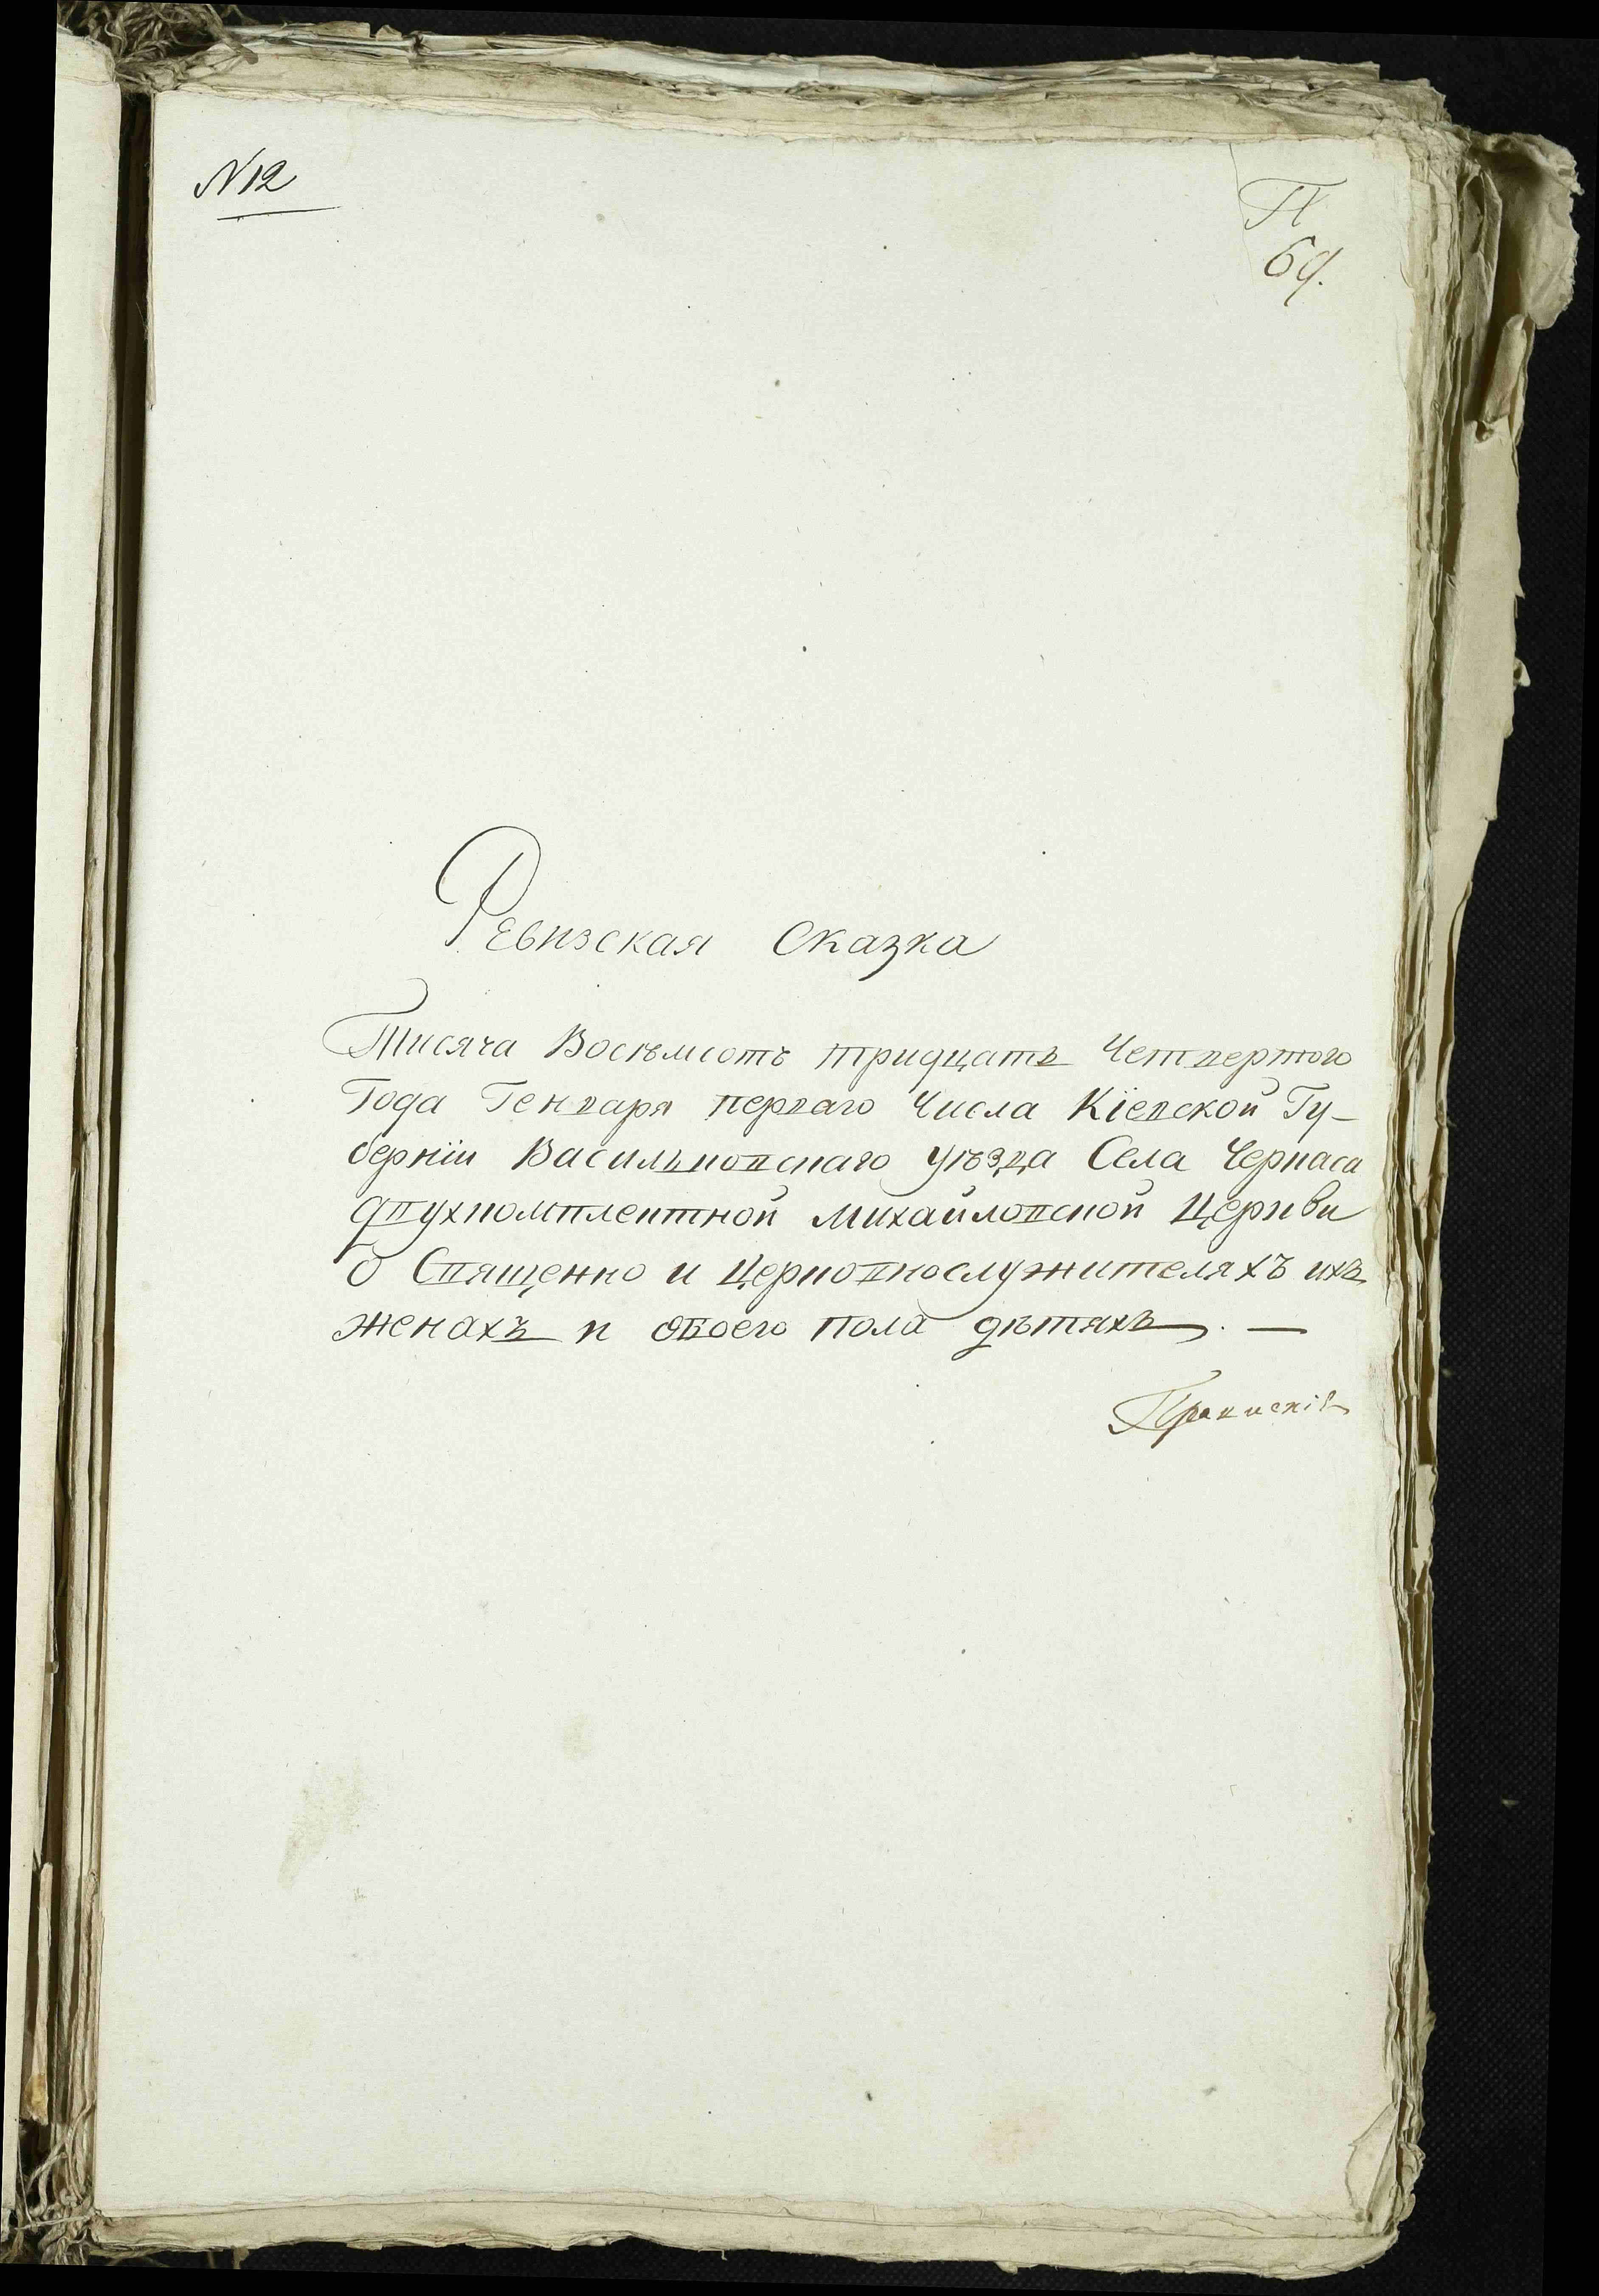 N 12
П
69.
Ревизская Сказка
Тисяча Восѣмсотъ тридцать Четвертого
Года Генваря перваго Числа Кіевской Гу-
берніи Васильковскаго уѣзда Села Черкаса
двухкомплектной Михайловской Церкви
О Священно и Церковнослужителяхъ ихъ
женахъ и обоего пола дѣтяхъ. —